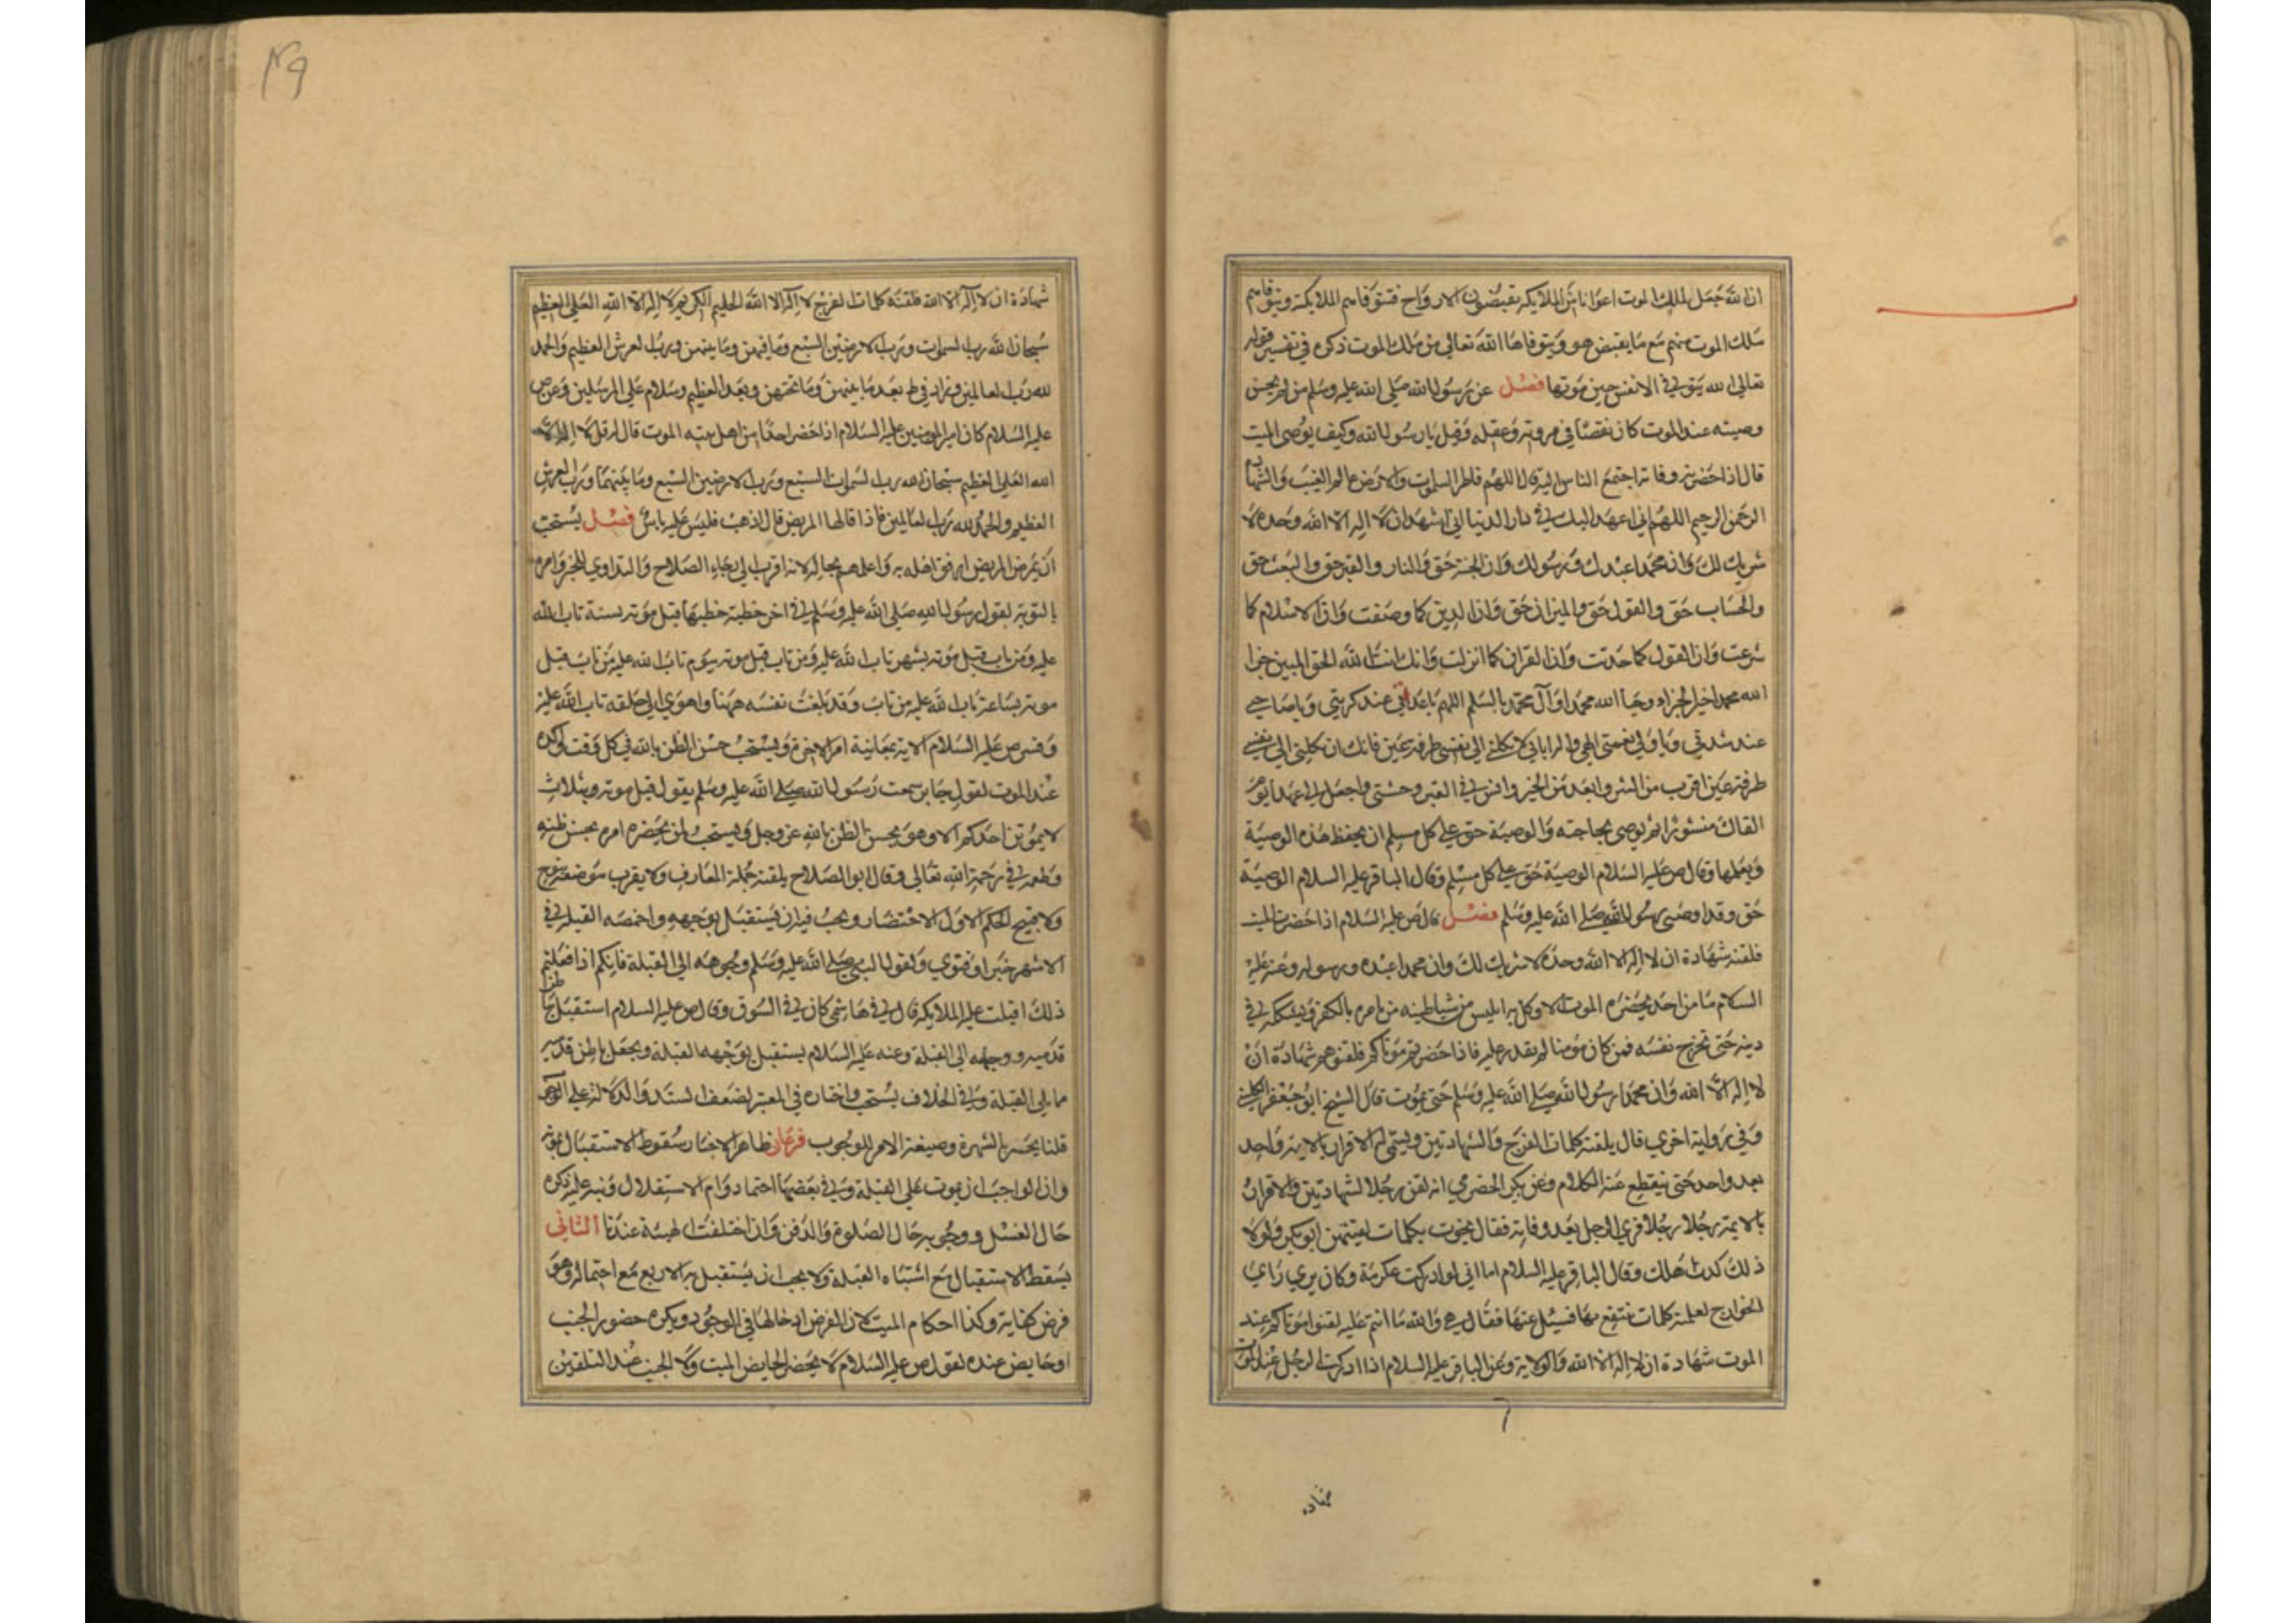 ان الله جعل لملك الموت اعوانا من الملايكه يقبضون الارواح فتتوفاهم الملايكة ويتوفاهم
ملك الموت منهم مع ما يقبض هو ويتوفاها الله تعالي من ملك الموت ذكره في تفسير قوله
تعالي الله يتوفي الانفس حين موتها فصل عن رسول الله صلي الله عليه وسلم من لم يحسن
وصيته عند الموت كان نقصا في مروته وعقله وقيل يا رسول الله وكيف يوصي الميت
قال اذا حضرته وفاته اجتمع الناس اليه قال اللهم فاطر السموات والارض عالم الغيب والشهادة
الرحمن الرحيم اللهم اني اعهد اليك في دار الدنيا اني اشهد ان لا اله الا الله وحده لا
شريك لك وان محمدا عبدك ورسولك وان الجنة حق والنار والقبر حق والبعث حق
والحساب حق والقول حق والميزان حق وان الدين كما وصفت وان الاسلام كما
شرعت وان القول كما حدثت وان القران كما انزلت وانك انت الله الحق المبين جزا
الله محمدا خير الجزاء وحيا الله محمدا وآل محمد بالسلم اللهم يا عدتي عند كربتي ويا صاحبي
عند شدتي ويا وليي نعمتي الهي واله اباني لا تكلني الي نفسي طرفة عين فانك ان تكلني الي نفسي
طرفة عين اقرب من الشر وابعد من الخير وانس في القبر وحشتي واجعل لي عهدا يوم
القاك منشورا ثم يوصي بحاجته والوصية حق علي كل مسلم ان يحفظ هذه الوصية
ويعملها وقال ص عليه السلام الوصية حق علي كل مسلم وقال الباقر عليه السلام الوصية
حق وقد اوصي رسول الله صلي الله عليه وسلم فصل قال ص عليه السلام اذا حضرت الميت
فلقنه شهادة ان لا اله الا الله وحده لا شريك لك وان محمدا عبده ورسوله وعنه عليه
السلام ما من احد يحضره الموت الا وكل به ابليس من شياطينه من يامره بالكفر ويشككه في
دينه حتي تخرج نفسه فمن كان مومنا لم يقدر عليه فاذا حضرتم موتاكم فلقنوهم شهادة ان
لا اله الا الله وان محمدا رسول الله صلي الله عليه وسلم حتي يموت قال الشيخ ابو جعفر الكليني
وفي رواية اخري قال يلقنه كلمات الفرج والشهادتين ويسمي له الاقرار بالايمة واحد
بعد واحد حتي ينقطع عنه الكلام وعن بكر الحضرمي انه لقن رجلا الشهادتين والاقرار
بالايمة رجلا رجلا فري الرجل بعد وفاته فقال نجوت بكلمات لقنيهن ابو بكر ولولا
ذلك كدت اهلك وقال الباقر عليه السلام اما اني لو ادركت عكرمة وكان يري راي
الخوارج لعلمته كلمات ينتفع بها فسيل عنها فقال هي والله ما انتم عليه لقنوا موتاكم عند
الموت شهادة ان لا اله الا الله والولاية وعن الباقر عليه السلام اذا ادركت الرجل عند الموت
شهادة
٤٩
شهادة ان لا اله الا الله فلقنه كلمات الفرج لا اله الا الله الحليم الكريم لا اله الا الله العلي العظيم
سبحان الله رب السموات ورب الارضين السبع وما فيهن وما بينهن ورب العرش العظيم والحمد
لله رب العالمين وزاد في بعد ما بينهن وما تحتهن وبعد العظيم وسلام علي المرسلين وعن ص
عليه السلام كان امير المومنين عليه السلام اذا حضر احدا من اهل بيته الموت قال له قل لا اله الا
الله العلي العظيم سبحان الله رب السموات السبع ورب الارضين السبع وما بينهما ورب العرش
العظيم والحمد لله رب العالمين فاذا قالها المريض قال اذهب فليس عليه باس فصل يستحب
ان يمرض المريض ارفق اهله به واعلمهم بحاله لانه اقرب الي رجاء الصلاح والتداوي للخبر وامره
بالتوبة لقول رسول الله صلي الله عليه وسلم في اخر خطبة خطبها قبل موته بسنة تاب الله
عليه ومن تاب قبل موته بشهر تاب الله عليه ومن تاب قبل موته بيوم تاب الله عليه من تاب قبل
موته بساعة تاب الله عليه من تاب وقد بلغت نفسه ههنا واهوي الي حلقه تاب الله عليه
وفسر ص عليه السلام الاية بمعاينة امر الاخرة ويستحب حسن الظن بالله في كل وقت واكده
عند الموت لقول جابر سمعت رسول الله صلي الله عليه وسلم يقول قبل موته بثلاث
لا يموتن احدكم الا وهو يحسن الظن بالله عز وجل ويستحب لمن يحضره امره بحسن ظنه
وطمعه في رحمة الله تعالي وقال ابو الصلاح يلقنه جملة المعارف ولا يقرب
الحكم الاول الاحتضار ويجب فيه ان يستقبل بوجهه واخمصه القبلة في
الاشهر خبرا وفتوي ولقول النبي صلي الله عليه وسلم وجهوهه الي القبلة فانكم اذا فعلتم
ذلك اقبلت عليه الملايكة قال في هاشمي كان في السوق وقال ص عليه السلام استقبل بباطن
قدميه ووجهه الي القبلة وعنه عليه السلام يستقبل بوجهه القبلة ويجعل باطن قدميه
مما يلي القبلة وفي الخلاف يستحب واختاره في المعتبر لضعف السند والدلالة علي الوجوب
قلنا ينجبر بالشهرة وصيغة الامر للوجوب فرعان ظاهر الاخبار سقوط الاستقبال بموته
وان الواجب ان يموت علي القبلة وفي بعضها احتماد دوام الاستقلال ونبه عليه ذكره
حال الغسل ووجوبه حال الصلوة والدفن وان اختلفت الهيئة عندنا الثاني
يسقط الاستقبال مع اشتباه القبلة ولا يجب ان يستقبل به الاربع مع احتماله وهو
فرض كفاية وكذا احكام الميت لان الغرض ادخالها في الوجود ويكره حضور الجنب
او حايض عنده لقول ص عليه السلام لا يحضر الحايض الميت ولا الجنب عند التلقين